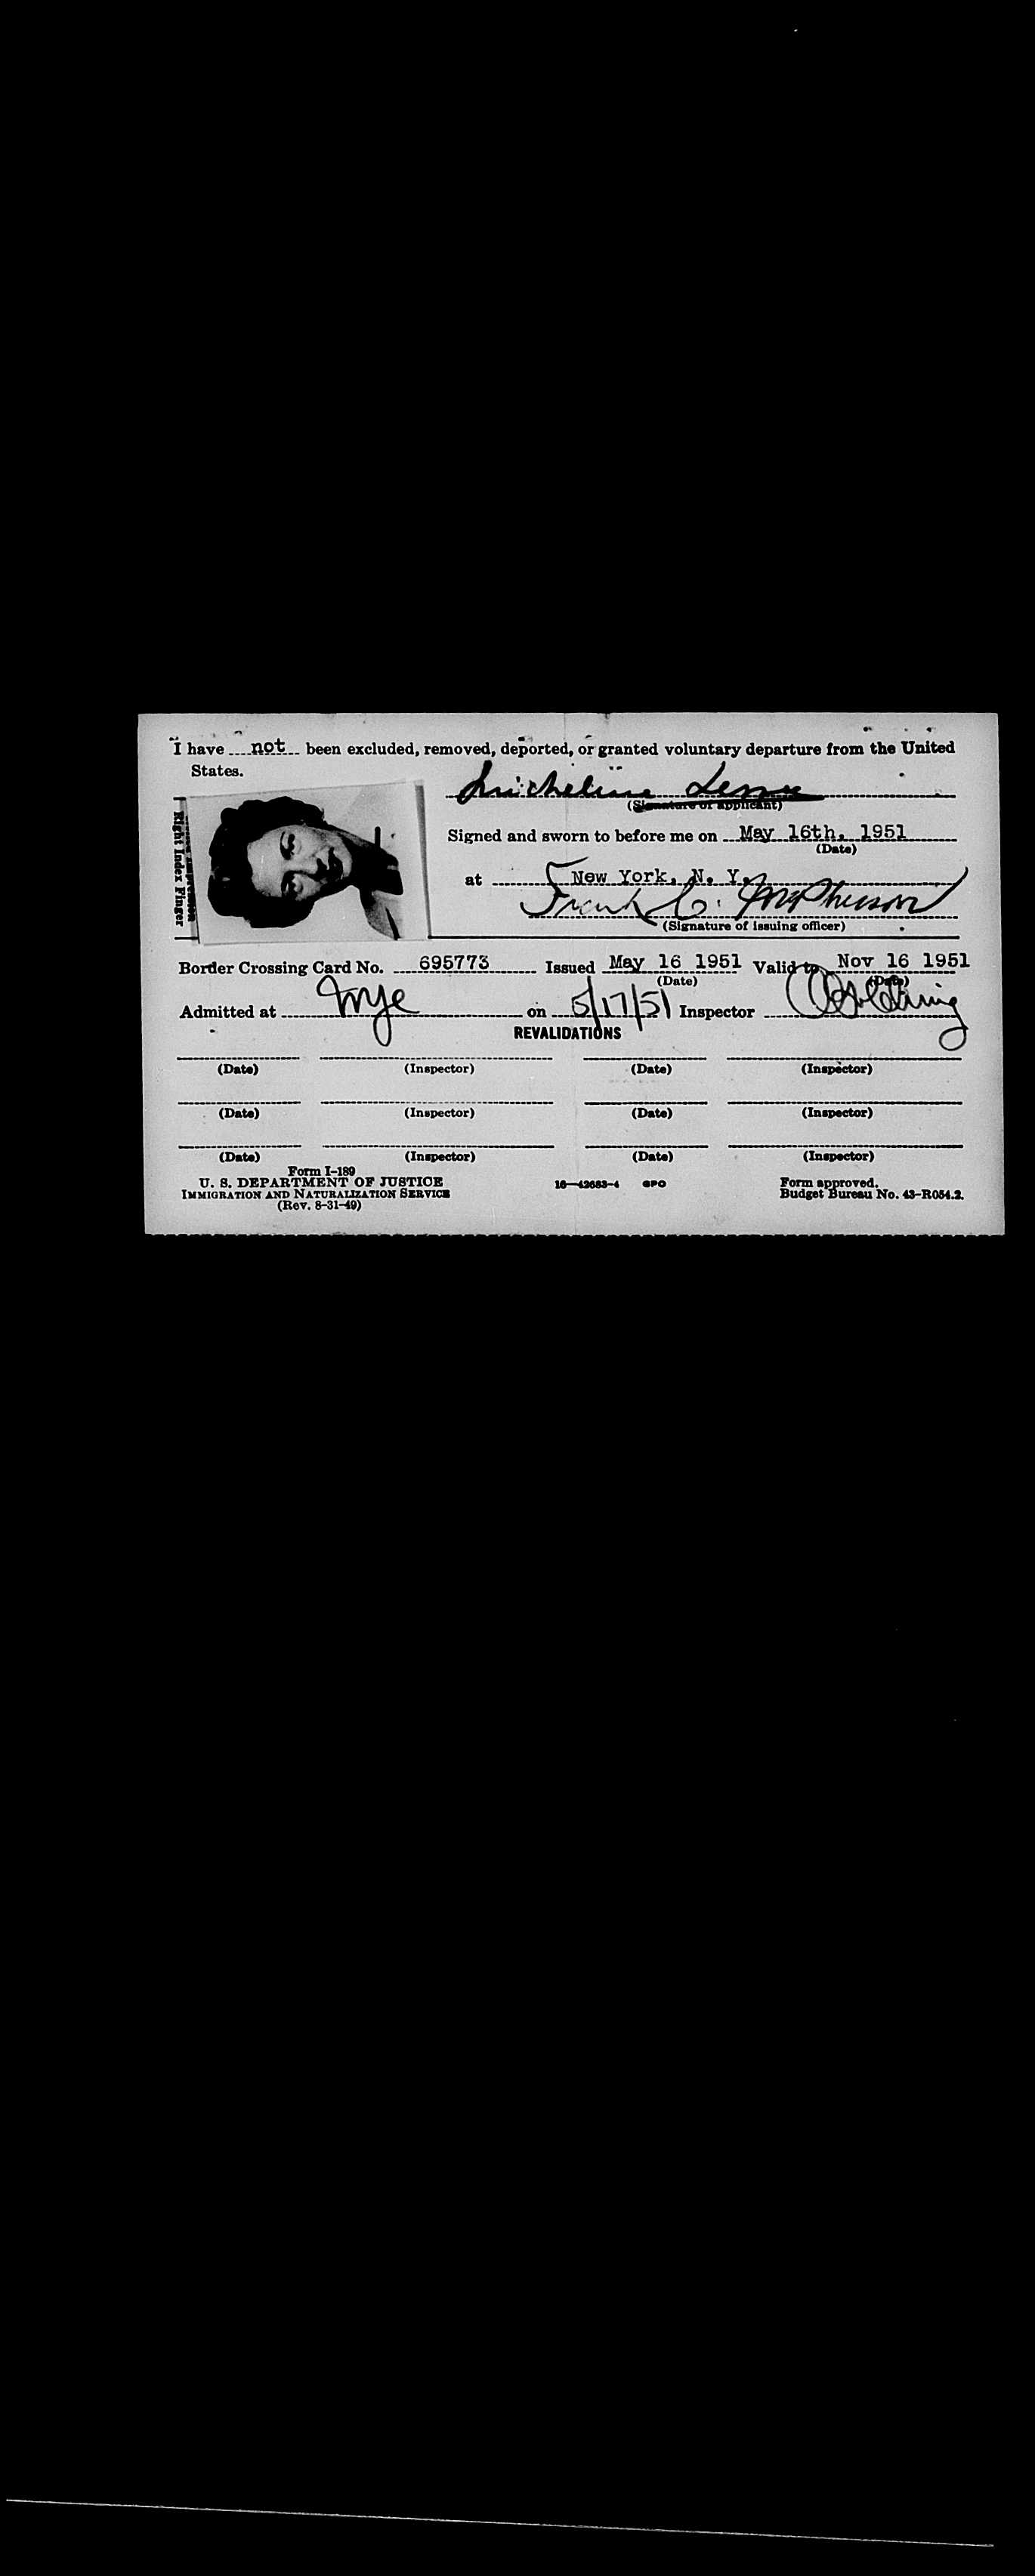 I have not been excluded, removed, deported, or granted voluntary departure from the United
States.
Micheline
(Signature of applicant)
Right Index Finger
Signed and sworn to before me on May 16th, 1951
(Date)
at New York, N. Y.
Frank C. McPherson
(Signature of issuing officer)
Border Crossing Card No. 695773 Issued May 16 1951 Valid to Nov 16 1951
(Date) (Date)
Admitted at nye on 5/17/51 Inspector
REVALIDATIONS
(Date) (Inspector) (Date) (Inspector)
(Date) (Inspector) (Date) (Inspector)
(Date) (Inspector) (Date) (Inspector)
Form I-189
U. S. DEPARTMENT OF JUSTICE
IMMIGRATION AND NATURALIZATION SERVICE
(Rev. 8-31-49)
16—42683-4 GPO
Form approved.
Budget Bureau No. 43-R054.2.